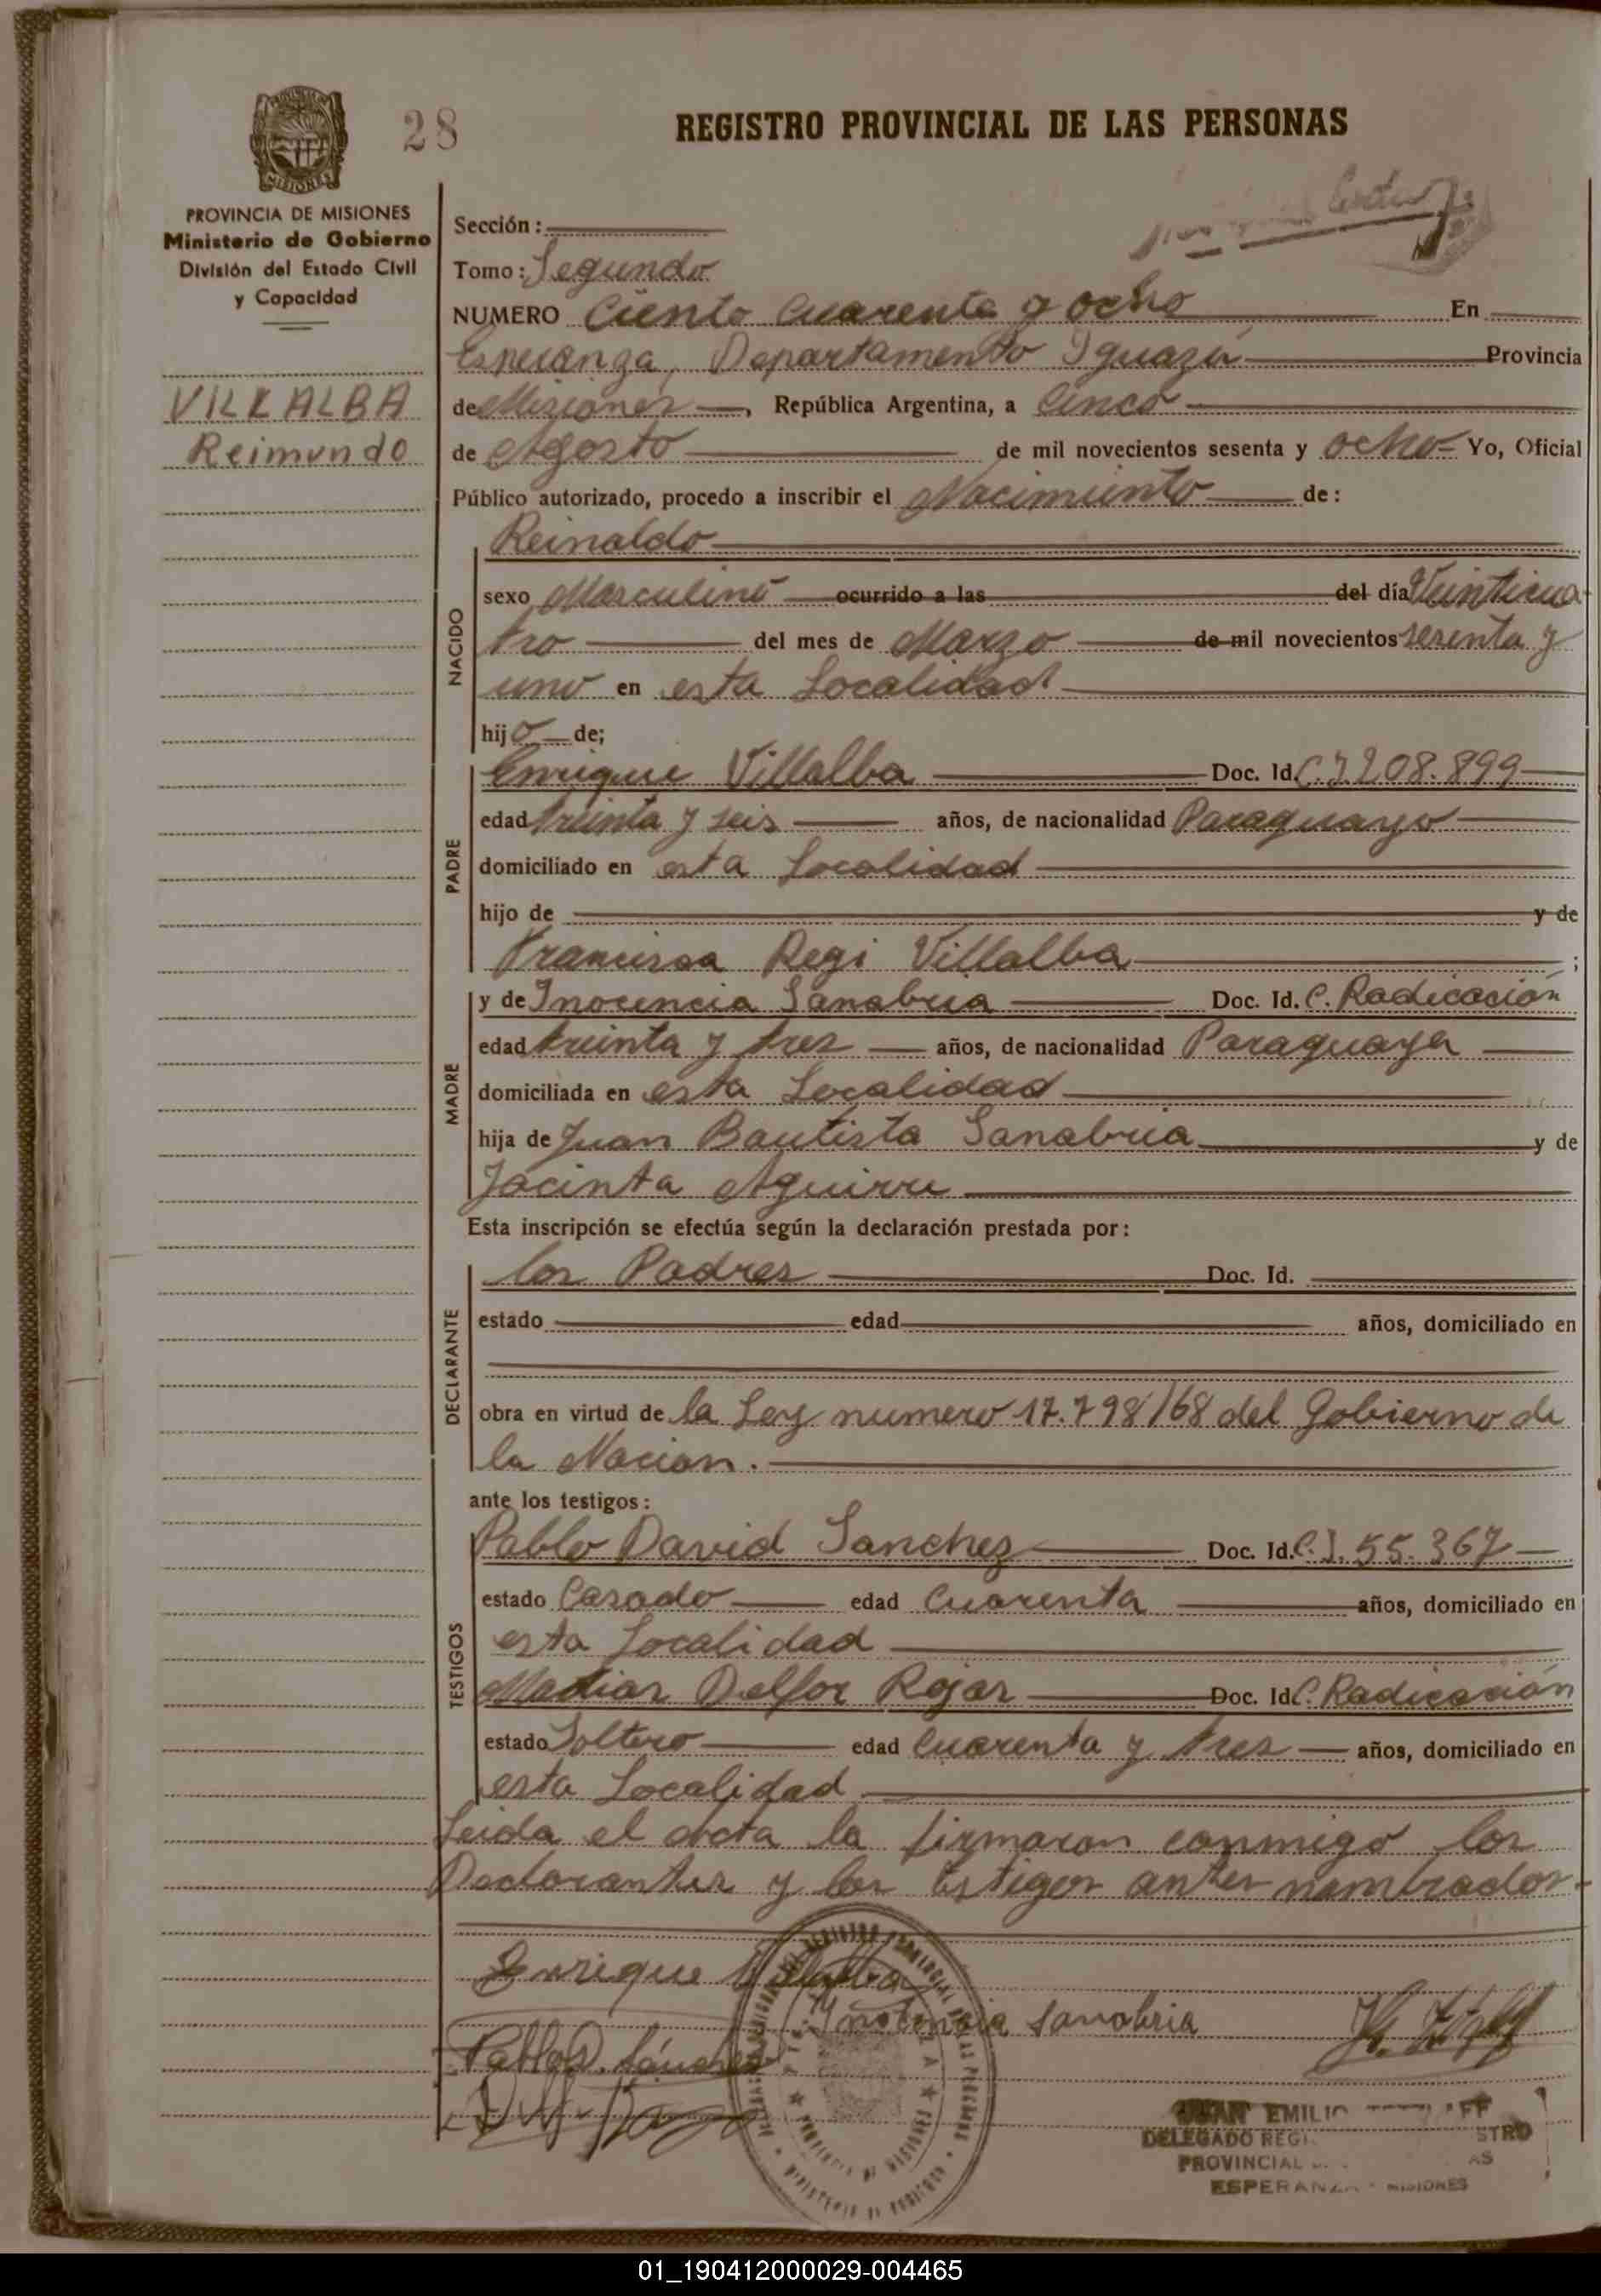 28
REGISTRO PROVINCIAL DE LAS PERSONAS
PROVINCIA DE MISIONES
Ministerio de Gobierno
División del Estado Civil
y Capacidad
VILLALBA
Reimundo
Sección:
Tomo: Segundo
NUMERO Ciento Cuarenta y ocho En
Esperanza, Departamento Iguazú Provincia
de Misiones, República Argentina, a Cinco
de Agosto de mil novecientos sesenta y ocho Yo, Oficial
Público autorizado, procedo a inscribir el Nacimiento de:
NACIDO
Reinaldo
sexo Masculino ocurrido a las del día Veinticua
tro del mes de Marzo de mil novecientos sesenta y
uno en esta Localidad
hijo de;
PADRE
Enrique Villalba Doc. Id. C.I. 208.899
edad treinta y seis años, de nacionalidad Paraguayo
domiciliado en esta Localidad
hijo de y de
Francisca Regi Villalba ;
MADRE
y de Inocencia Sanabria Doc. Id. C. Radicación
edad treinta y tres años, de nacionalidad Paraguaya
domiciliada en esta Localidad
hija de Juan Bautista Sanabria y de
Jacinta Aguirre
Esta inscripción se efectúa según la declaración prestada por:
DECLARANTE
los Padres Doc. Id.
estado edad años, domiciliado en
obra en virtud de la Ley numero 17.798/68 del Gobierno de
la Nacion.
ante los testigos:
TESTIGOS
Pablo David Sanchez Doc. Id. C.I. 55.367
estado Casado edad Cuarenta años, domiciliado en
esta Localidad
Matias Delfor Rojas Doc. Id. C. Radicación
estado Soltero edad Cuarenta y tres años, domiciliado en
esta Localidad
Leida el acta la firmaron conmigo los
Declarantes y los testigos antes nombrados.
Enrique Villalba
Inocencia sanabria
Pablo D. Sánchez
JUAN EMILIO
DELEGADO
PROVINCIAL
ESPERANZA - MISIONES
01_190412000029-004465